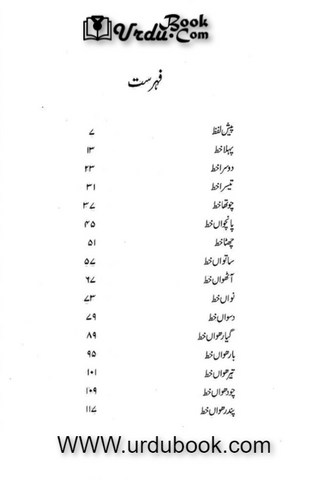 Urdu Book.Com
فہرست
پیش لفظ ۷
پہلا خط ۱۳
دوسرا خط ۲۳
تیسرا خط ۳۱
چوتھا خط ۳۷
پانچواں خط ۴۵
چھٹا خط ۵۱
ساتواں خط ۵۷
آٹھواں خط ۶۷
نواں خط ۷۳
دسواں خط ۷۹
گیارھواں خط ۸۹
بارھواں خط ۹۵
تیرھواں خط ۱۰۱
چودھواں خط ۱۰۹
پندرھواں خط ۱۱۷
WWW.urdubook.com